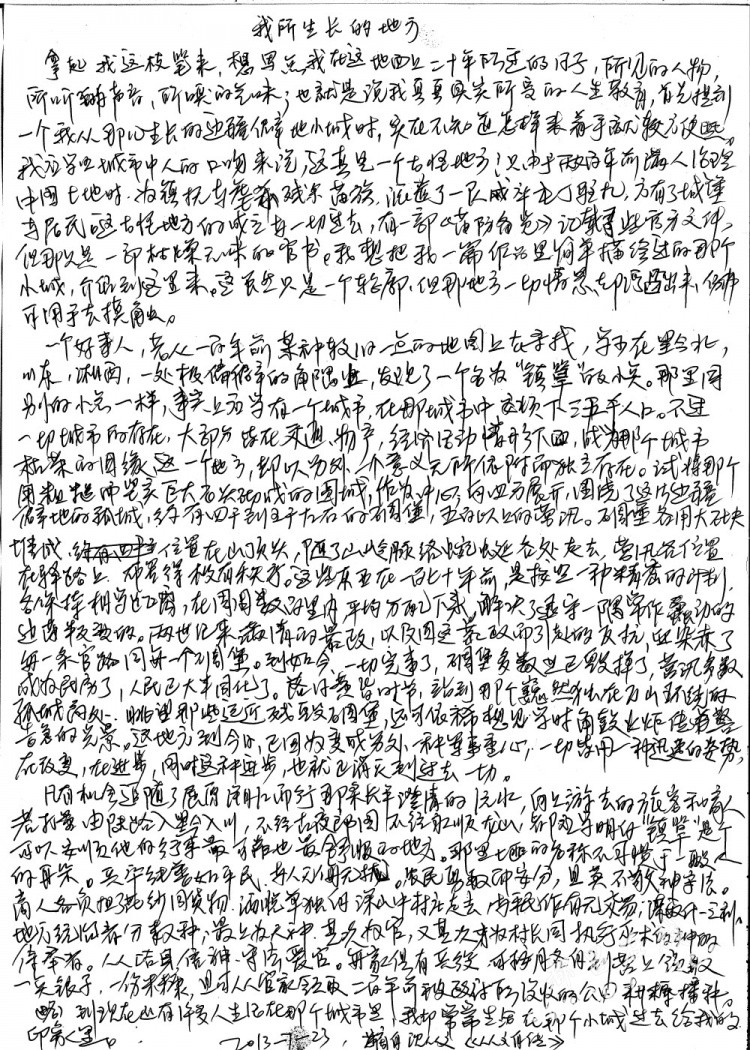 我所生长的地方
拿起我这枝笔来，想写点我在这地面上二十年所过的日子，所见的人物，
所听的声音，所嗅的气味；也就是说我真真实实所受的人生教育，首先提到
一个我从那儿生长的边疆僻地小城时，实在不知道怎样来着手就较方便些。
我应当照城市中人的口吻来说，这真是一个古怪地方！只由于两百年前满人治理
中国土地时，为镇抚与虐杀残余苗族，派遣了一队戍卒屯丁驻扎，方有了城堡
与居民。这古怪地方的成立与一切过去，有一部《苗防备览》记载了些官方文件，
但那只是一部枯燥无味的官书。我想把我一篇作品里简单描绘过的那个
小城，介绍到这里来。这虽然只是一个轮廓，但那地方一切情景，却浮凸出来，仿佛
可用手去摸触。
一个好事人，若从一百年前某种较旧一点的地图上去寻找，当可在黔北，
川东，湘西，一处极偏僻的角隅上，发现了一个名为“镇筸”的小点。那里同
别的小点一样，事实上应当有一个城市，在那城市中，安顿下三五千人口。不过
一切城市的存在，大部分皆在交通，物产，经济活动情形下面，成为那个城市
枯荣的因缘，这一个地方，却以另外一个意义无所依附而独立存在。试将那个
用粗糙而坚实巨大石头砌成的圆城，作为中心，向四方展开，围绕了这边疆
僻地的孤城，约有四千到五千左右的碉堡，五百以上的营汛。碉堡各用大石块
堆成，位置在山顶头，随了山岭脉络蜿蜒各处走去，营汛各位置
在驿路上，布置得极有秩序。这些东西在一百七十年前，是按照一种精密的计划，
各保持相当距离，在周围数百里内，平均分配下来，解决了退守一隅常作蠢动的
边苗叛变的。两世纪来满清的暴政，以及因这暴政而引起的反抗，血染赤了
每一条官路同每一个碉堡。到如今，一切完事了，碉堡多数业已毁掉了，营汛多数
成为民房了，人民已大半同化了。落日黄昏时节，站到那个巍然独在万山环绕的
孤城高处，眺望那些远近残毁碉堡，还可依稀想见当时角鼓火炬传警
告急的光景。这地方到今日，已因为变成另外一种军事重心，一切皆用一种迅速的姿势，
在改变，在进步，同时这种进步，也就正消灭到过去一切。
凡有机会追随了屈原溯江而行那条长年澄清的沅水，向上游去的旅客和商人，
若打量由陆路入黔入川，不经古夜郎国，不经永顺龙山，都应当明白“镇筸”是个
可以安顿他的行李最可靠也最舒服的地方。那里土匪的名称不习惯于一般人
的耳朵。兵卒纯善如平民，与人无侮无扰。农民勇敢而安分，且莫不敬神守法。
商人各负担了花纱同货物，洒脱单独向深山中村庄走去，与平民作有无交易，谋取什一之利。
地方统治者分数种：最上为天神，其次为官，又其次才为村长同执行巫术的神的
侍奉者。人人洁身信神，守法爱官。每家俱有兵役，可按月各自到营上领取
一点银子，一份米粮，且可从官家领取二百年前被政府所没收的公田耕耨播种。
（略）到现在已有许多人生活在那个城市里，我却常常生活在那个小城过去给我的
印象里。
2013 23，摘自沈从文《从文自传》